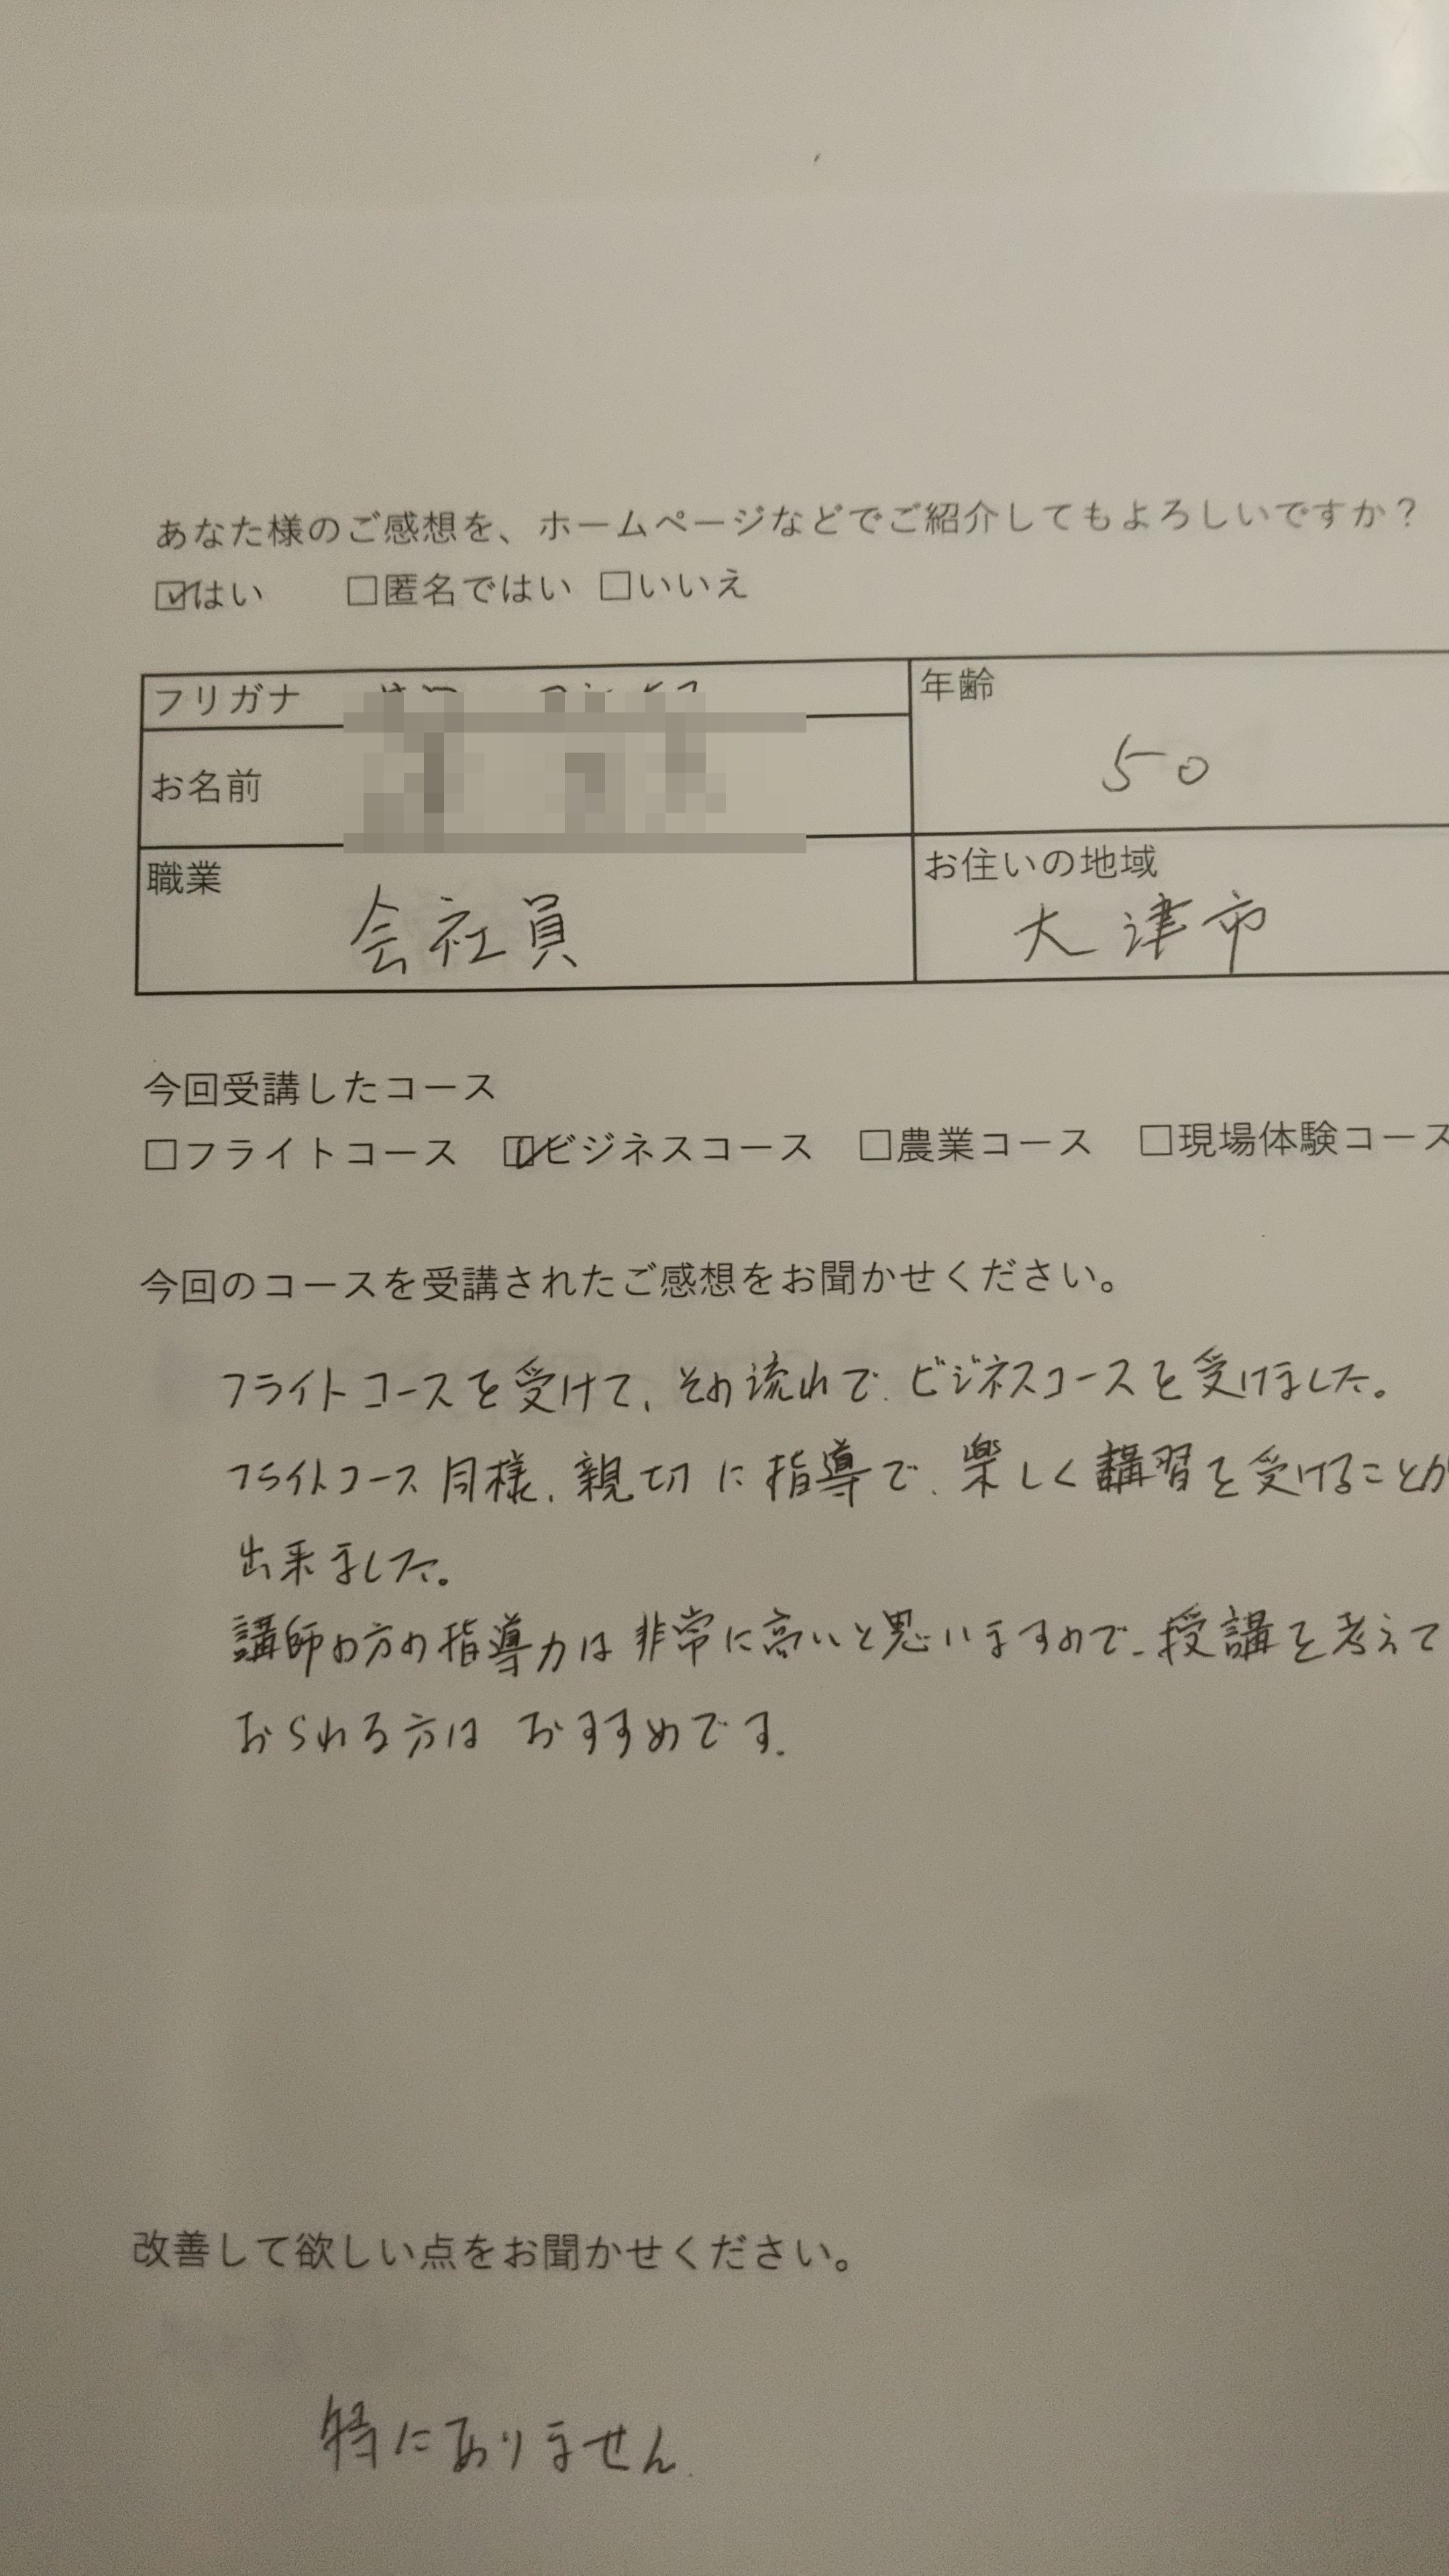 あなた様のご感想を、ホームページなどでご紹介してもよろしいですか？
☑はい　□匿名ではい　□いいえ
フリガナ
お名前
年齢
50
職業
会社員
お住いの地域
大津市
今回受講したコース
□フライトコース　☑ビジネスコース　□農業コース　□現場体験コース
今回のコースを受講されたご感想をお聞かせください。
フライトコースを受けて、その流れで、ビジネスコースを受けました。
フライトコース同様、親切に指導で、楽しく講習を受けることが
出来ました。
講師の方の指導力は非常に高いと思いますので、授講を考えて
おられる方は おすすめです。
改善して欲しい点をお聞かせください。
特にありません.